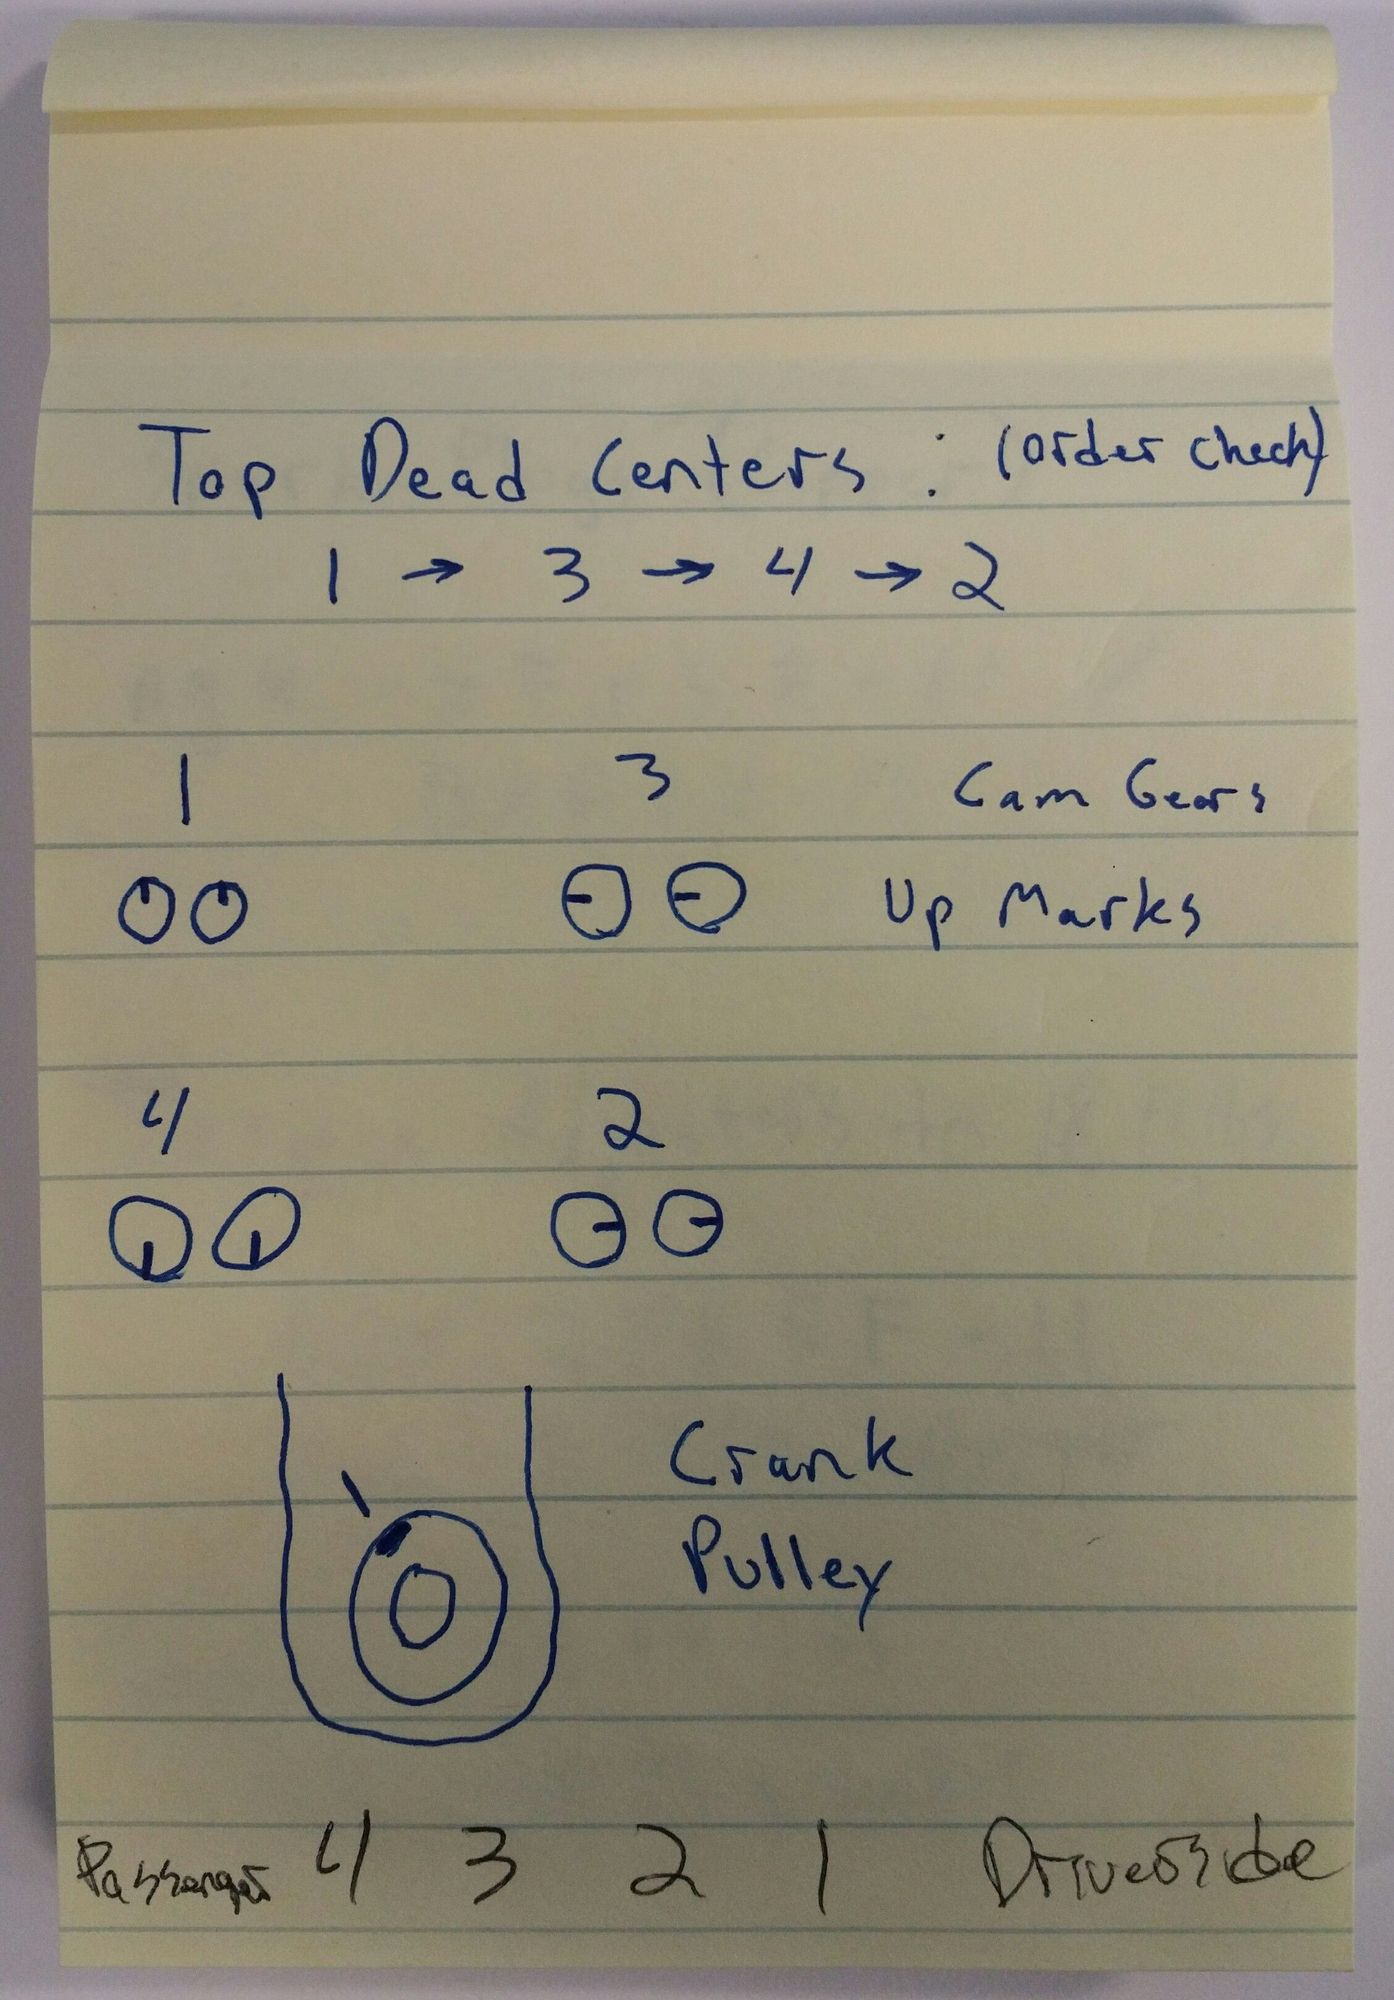 Top Dead Centers : (order check)
1 → 3 → 4 → 2
1 3 Cam Gears
Up Marks
4 2
Crank
Pulley
Passenger 4 3 2 1 Driverside